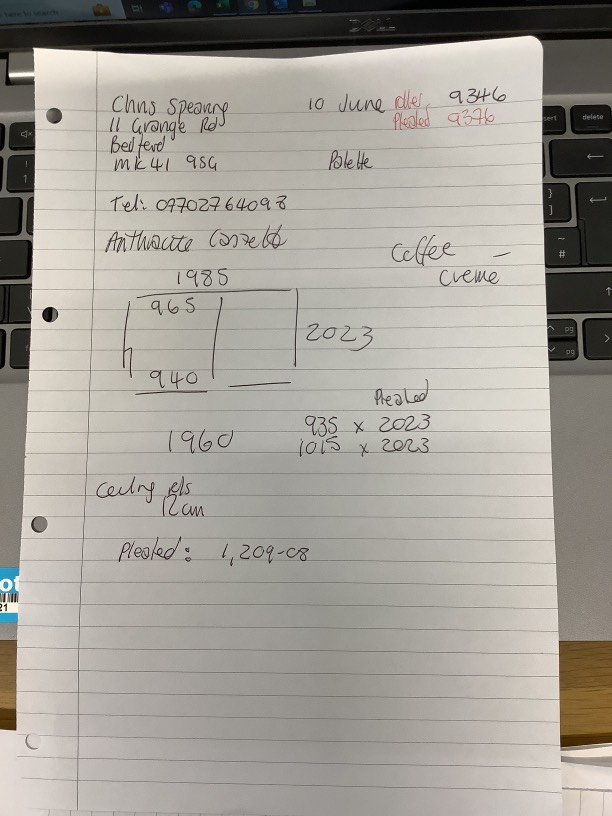 Chris Spearing 10 June roller 9346
11 Grange Rd Pleated 9376
Bedford
MK41 9SG Palette
Tel: 07702764098
Anthracite Cassette
Coffee -
Creme
1985
965
2023
940
Pleated
1960 935 x 2023
1015 x 2023
Ceiling
12cm
Pleated: 1,209-08
delete
#
pg
pg
21